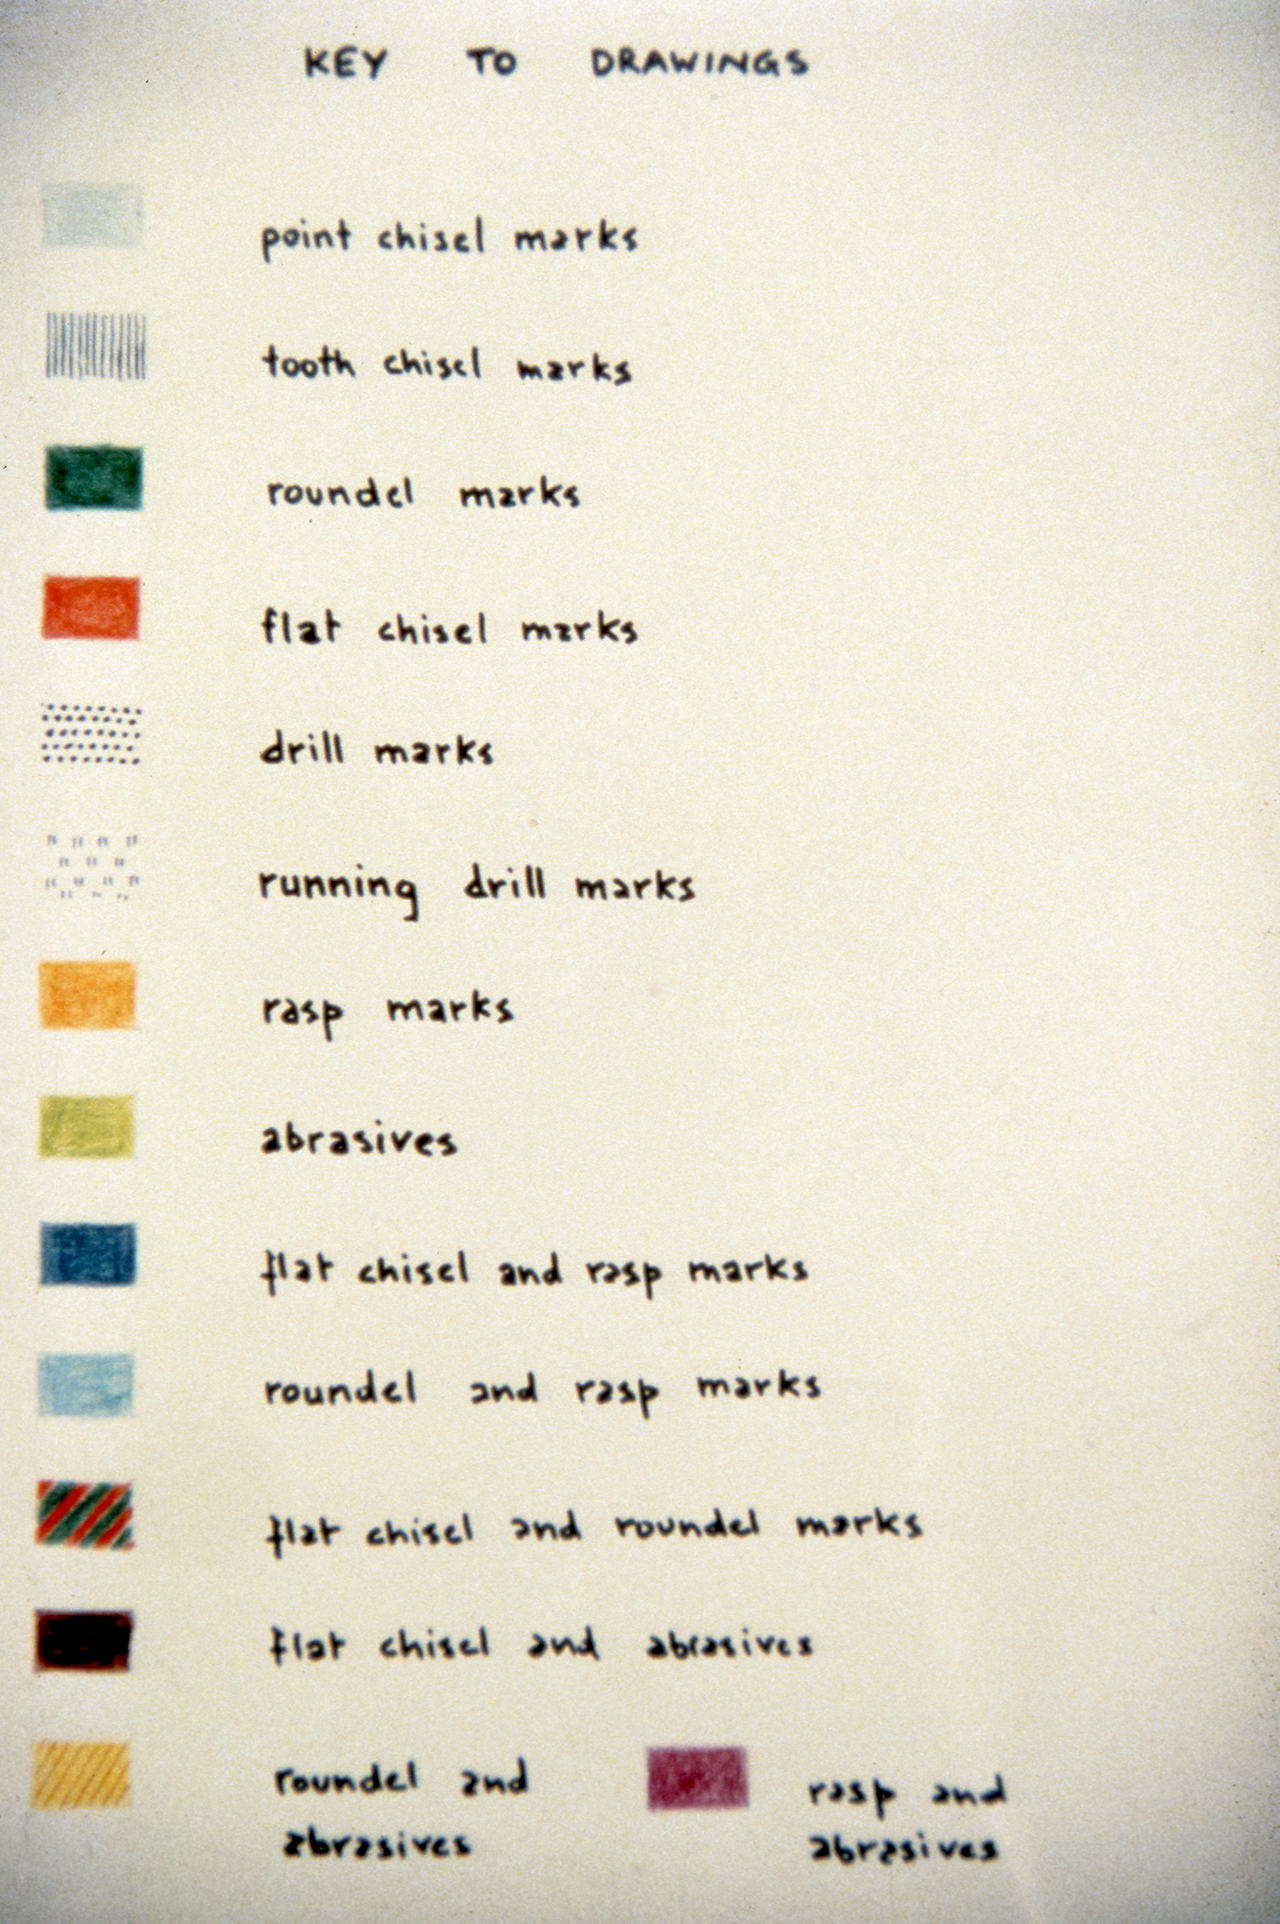 KEY TO DRAWINGS
point chisel marks
tooth chisel marks
roundel marks
flat chisel marks
drill marks
running drill marks
rasp marks
abrasives
flat chisel and rasp marks
roundel and rasp marks
flat chisel and roundel marks
flat chisel and abrasives
roundel and
abrasives
rasp and
abrasives